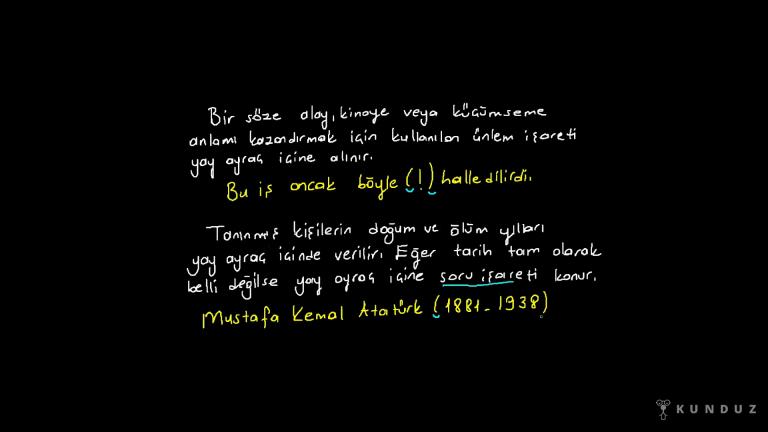 Bir söze alay, kinaye veya küçümseme
anlamı kazandırmak için kullanılan ünlem işareti
yay ayraç içine alınır.
Bu iş ancak böyle (!) halledilirdi.
Tanınmış kişilerin doğum ve ölüm yılları
yay ayraç içinde verilir. Eğer tarih tam olarak
belli değilse yay ayraç içine soru işareti konur.
Mustafa Kemal Atatürk (1881-1938)
KUNDUZ